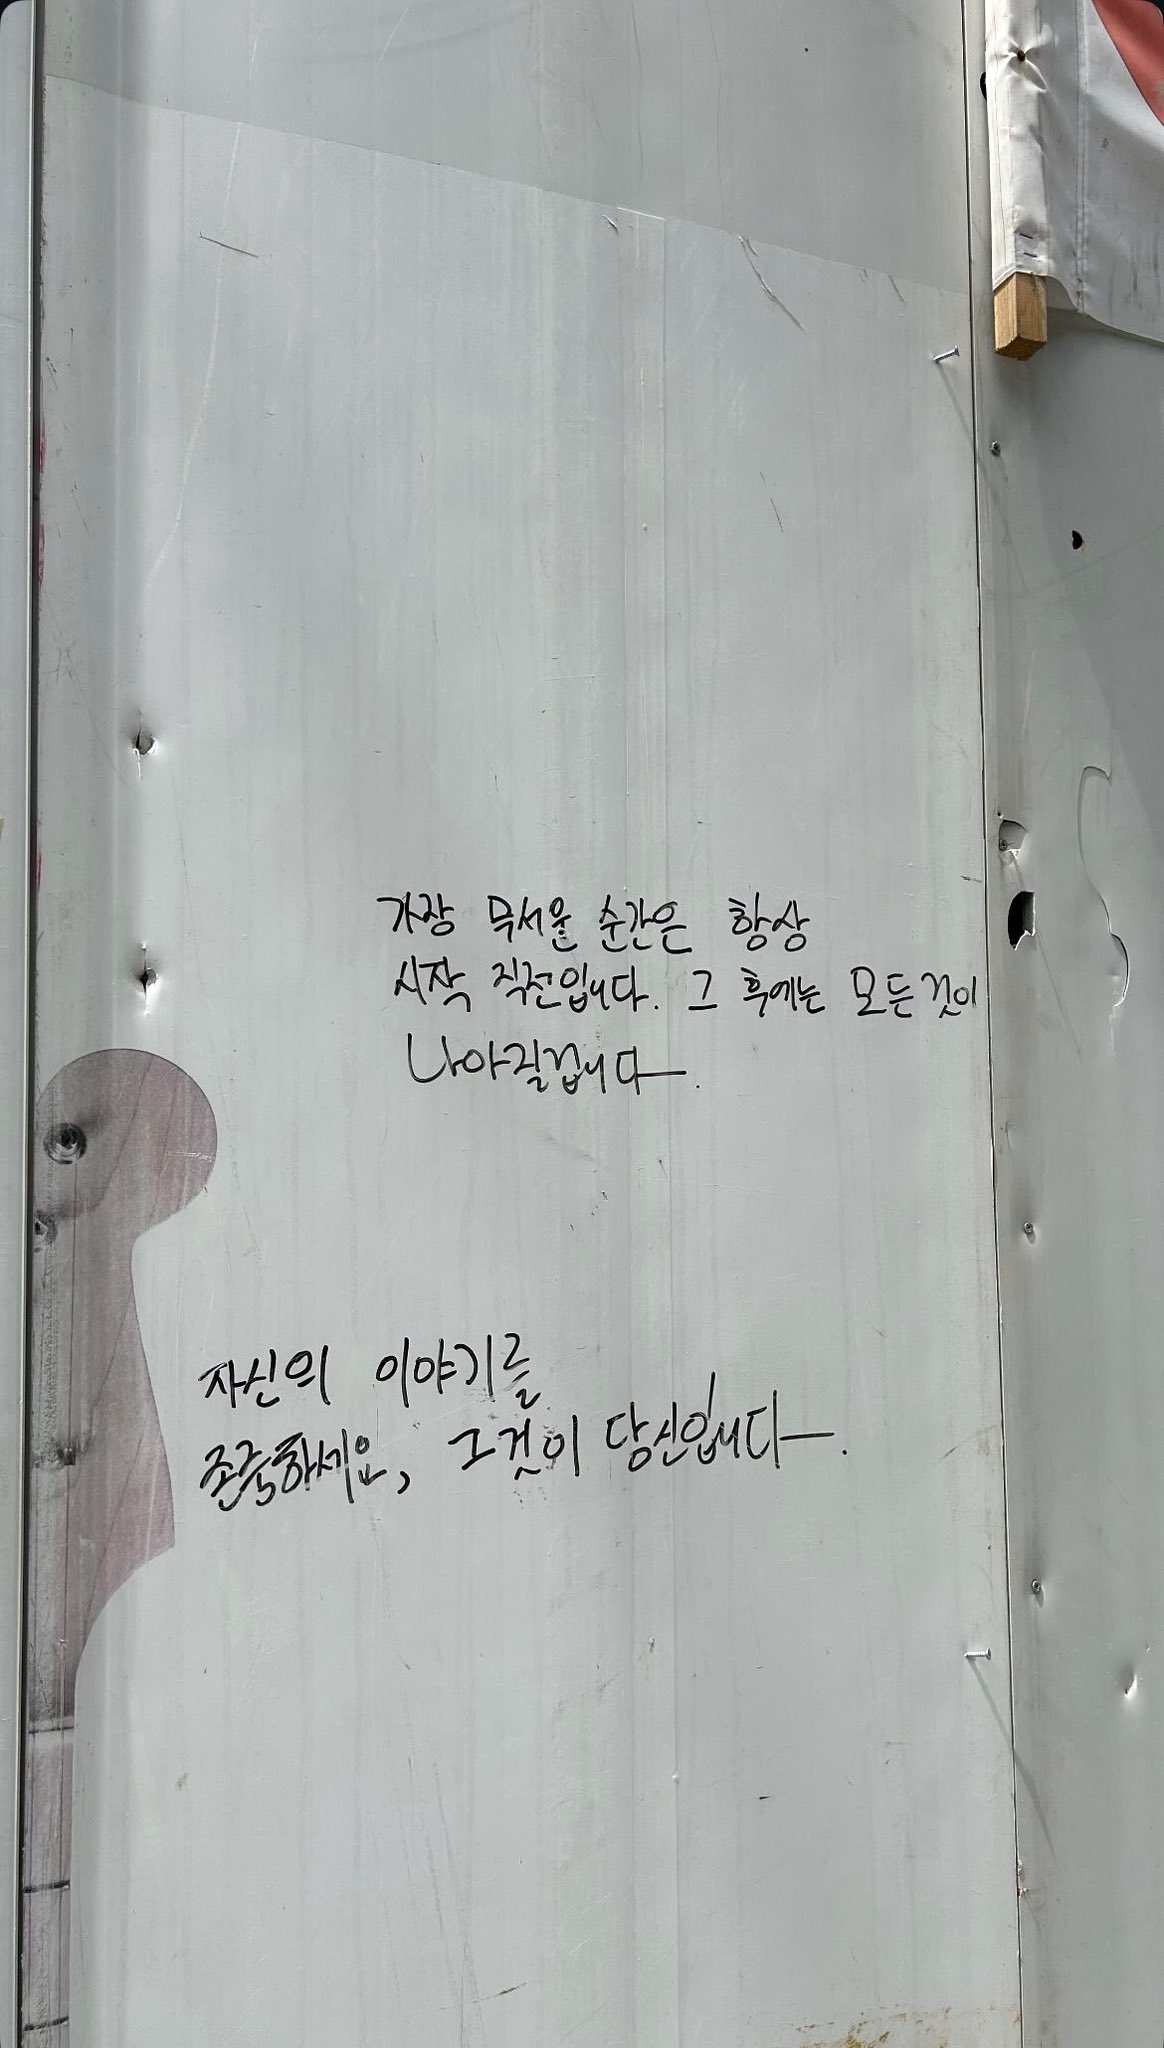 가장 무서운 순간은 항상
시작 직전입니다. 그 후에는 모든것이
나아질겁니다.
자신의 이야기를
존중하세요, 그것이 당신입니다.